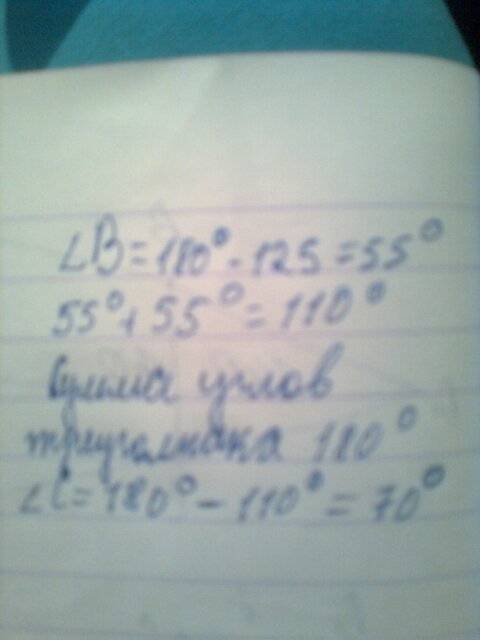 ∠B=180°-125=55°
55°+55°=110°
Сумма углов
треуголника 180°
∠C=180°-110°=70°